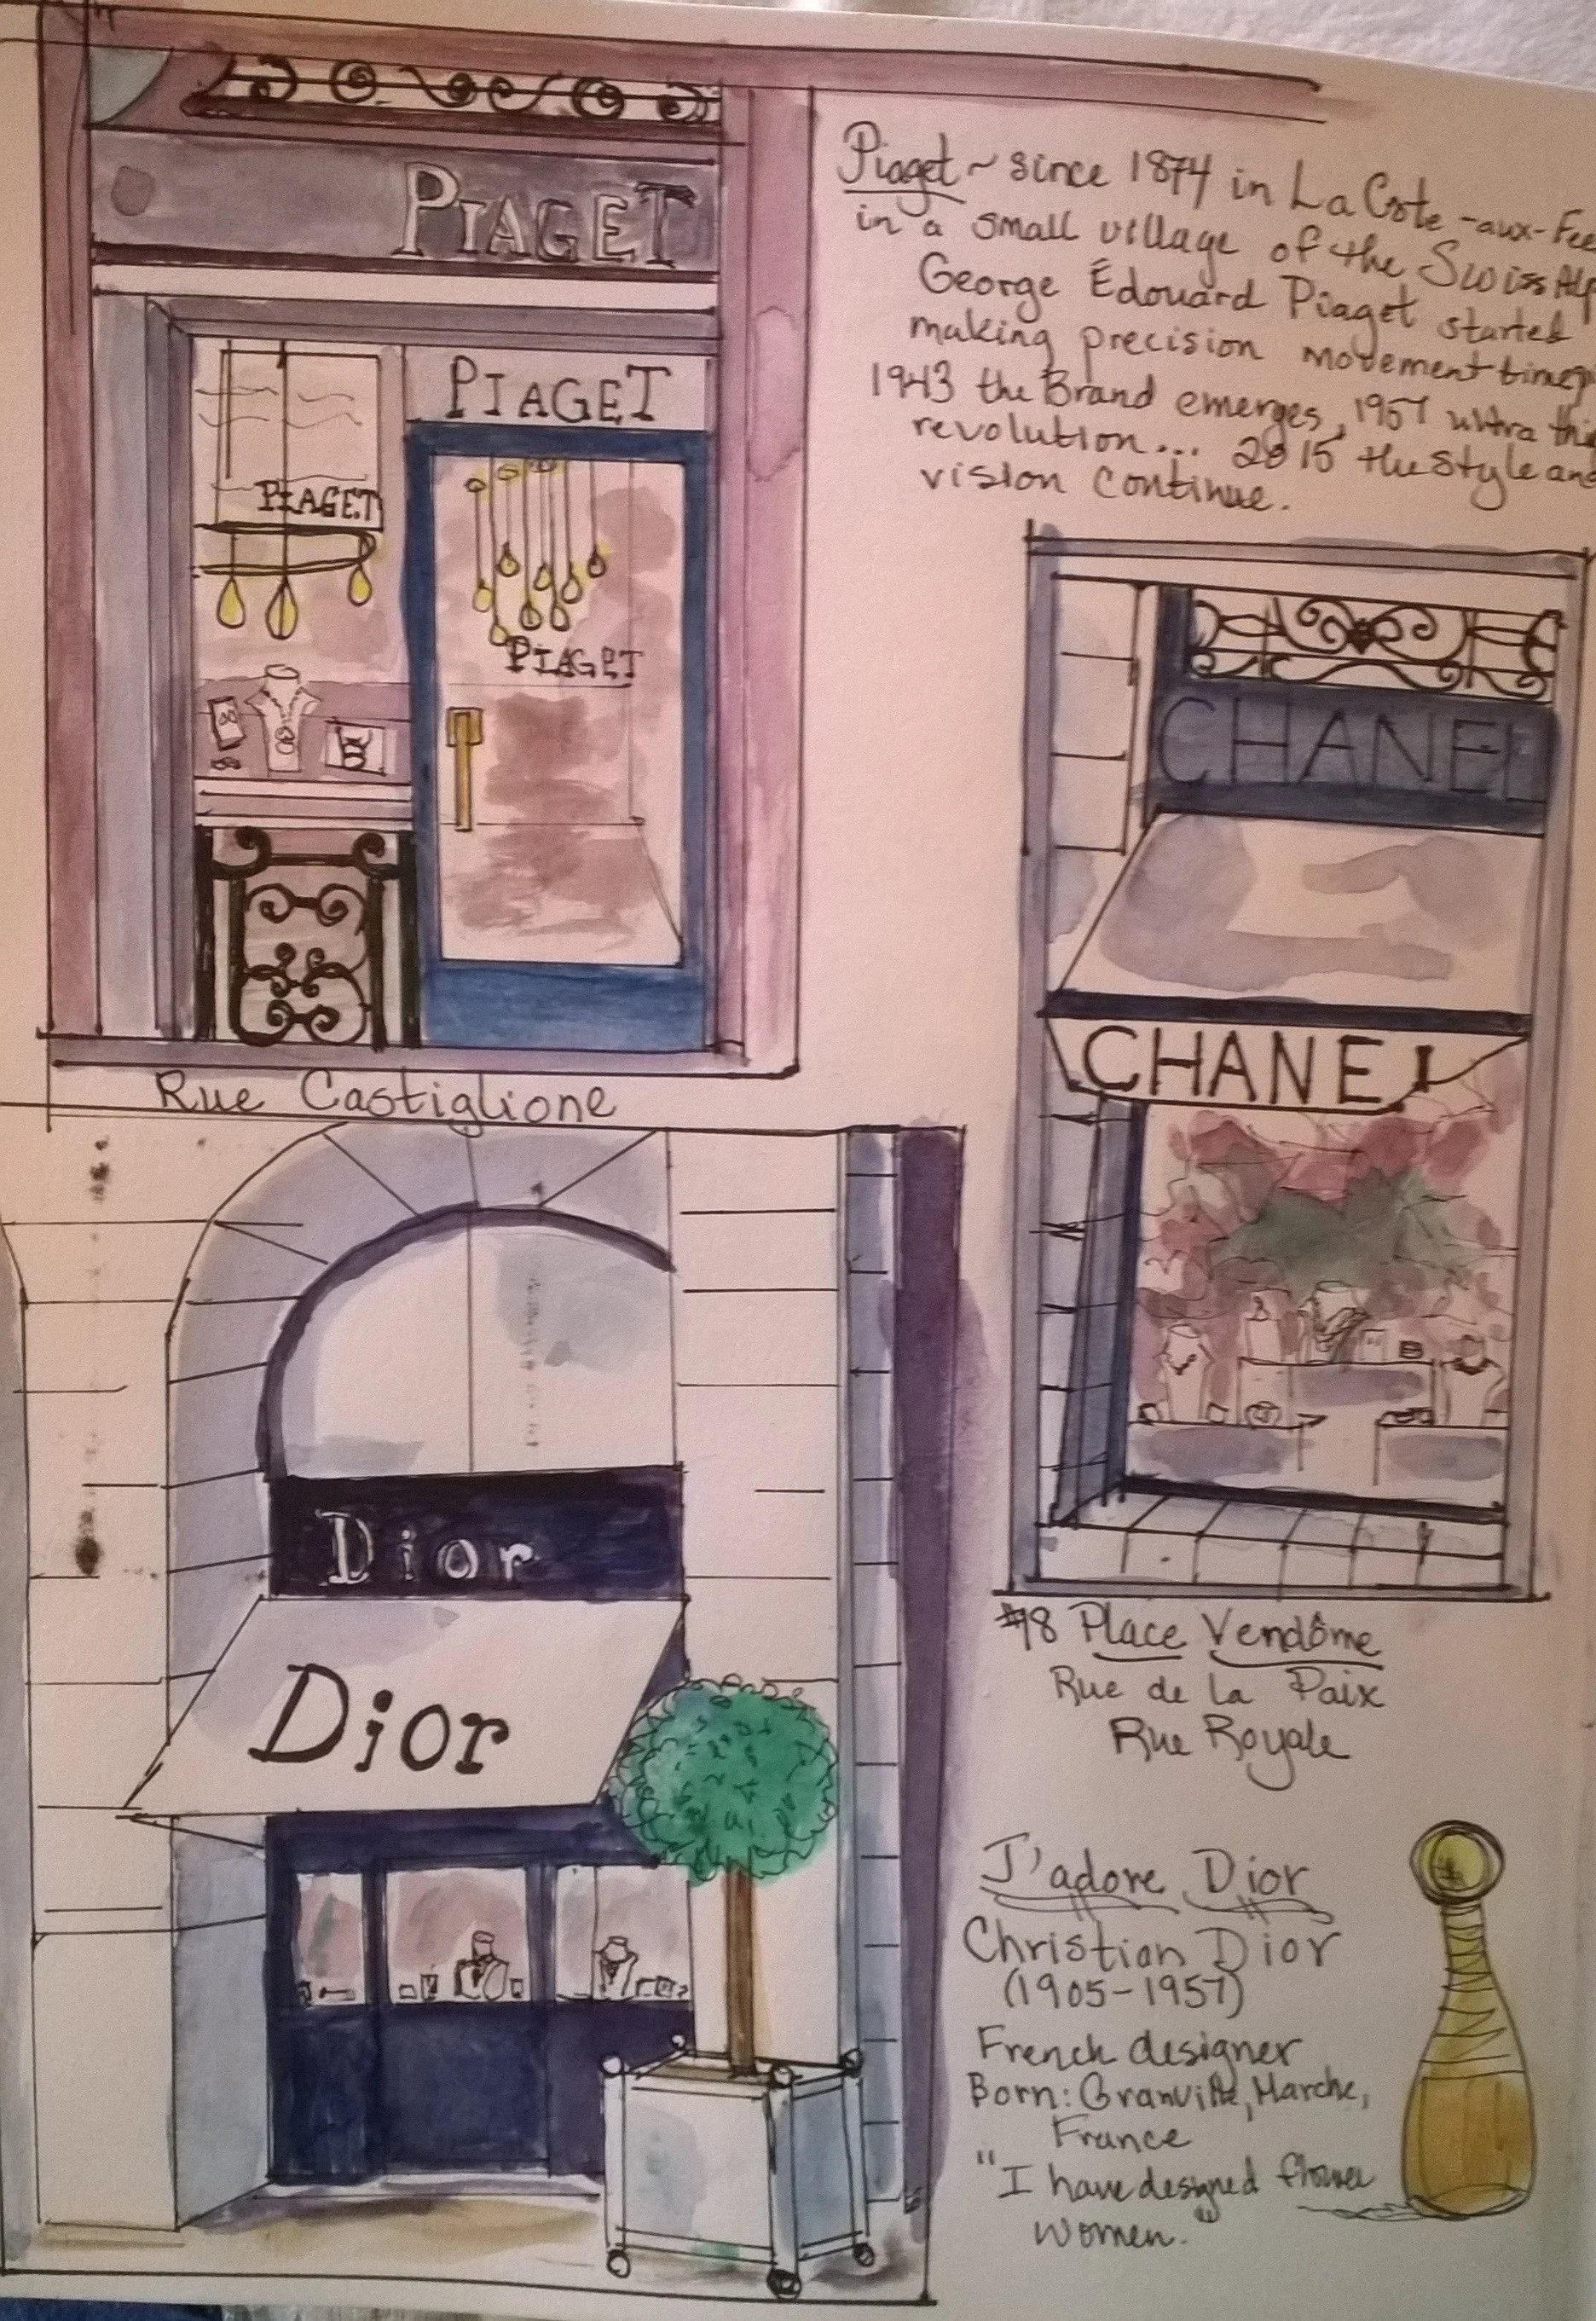 PIAGET
PIAGET
PIAGET
PIAGET
Rue Castiglione
Piaget ~ since 1874 in La Cote-aux-Fee
in a small village of the Swiss Alp
George Édouard Piaget started
making precision movement timep
1943 the Brand emerges, 1957 ultra thi
revolution... 2015 the style and
vision continue.
CHANEL
CHANEL
#18 Place Vendôme
Rue de la Paix
Rue Royale
Dior
Dior
J'adore Dior
Christian Dior
(1905-1957)
French designer
Born: Granville, Marche,
France
"I have designed flower
women.